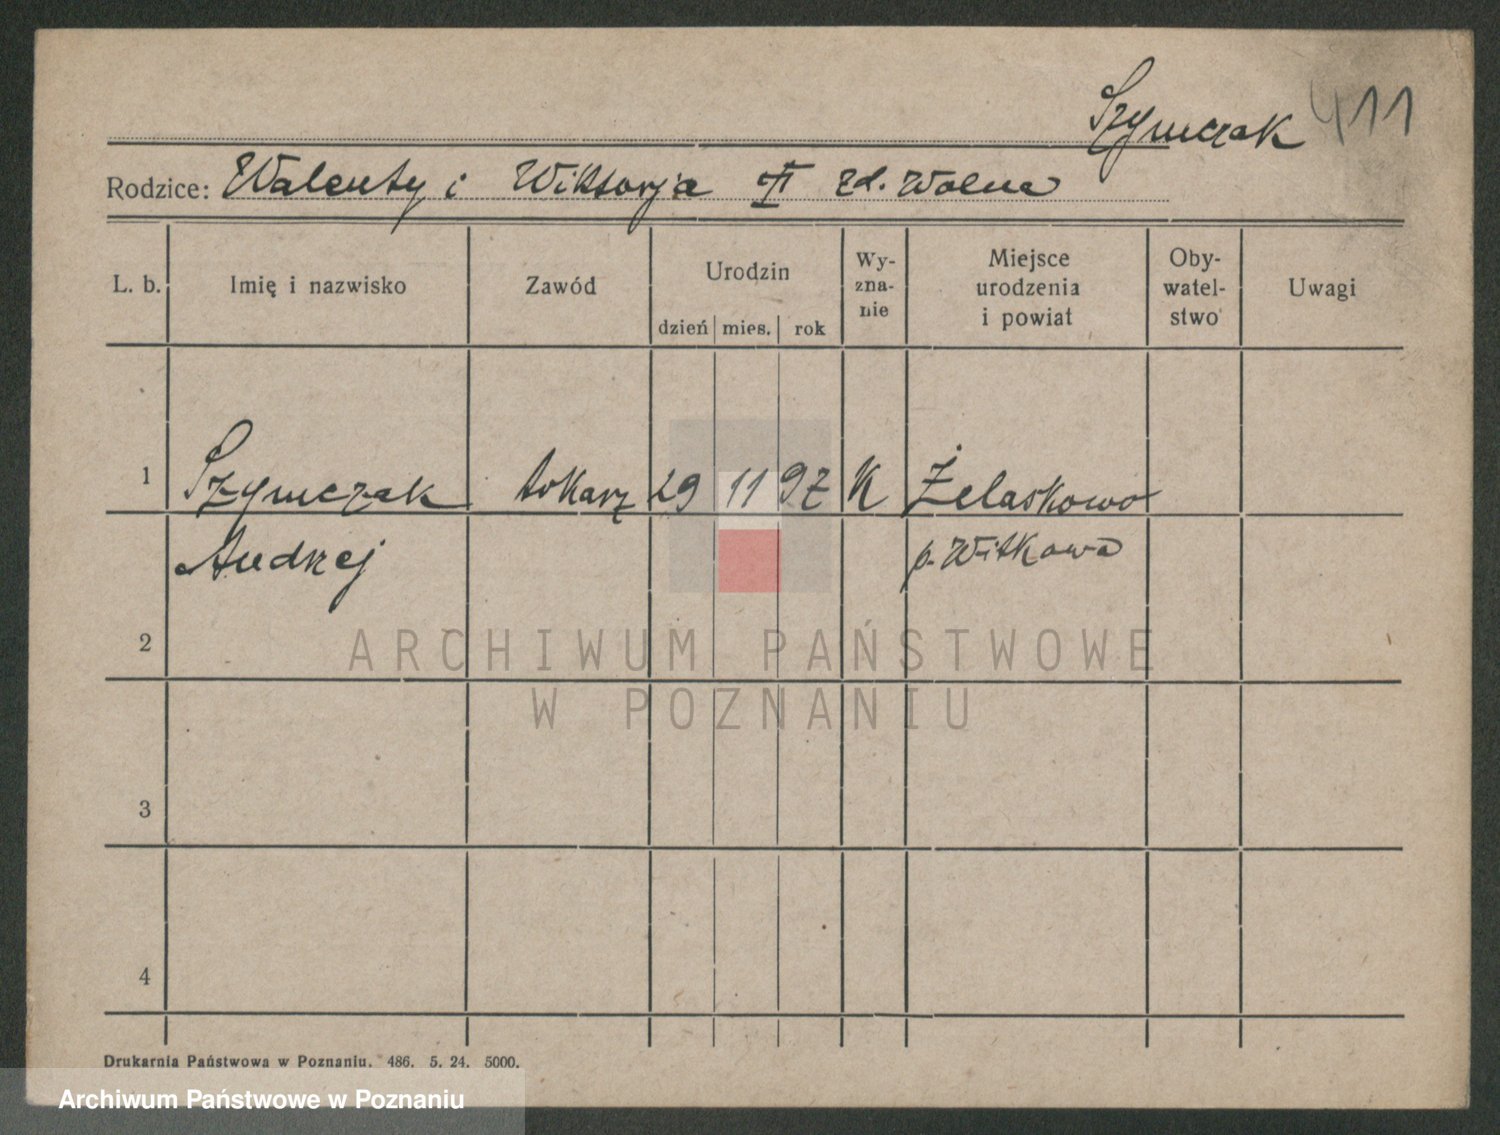 Szymczak 411
Rodzice: Walenty i Wiktorja II zd. Wolna
L. b. Imię i nazwisko Zawód Urodzin dzień mies. rok Wy-zna-nie Miejsce urodzenia i powiat Oby-watel-stwo Uwagi
1 Szymczak tokarz 29 11 97 K Żelaskowo
Andrzej p. Witkowa
2
ARCHIWUM PAŃSTWOWE
W POZNANIU
3
4
Drukarnia Państwowa w Poznaniu. 486. 5. 24. 5000.
Archiwum Państwowe w Poznaniu